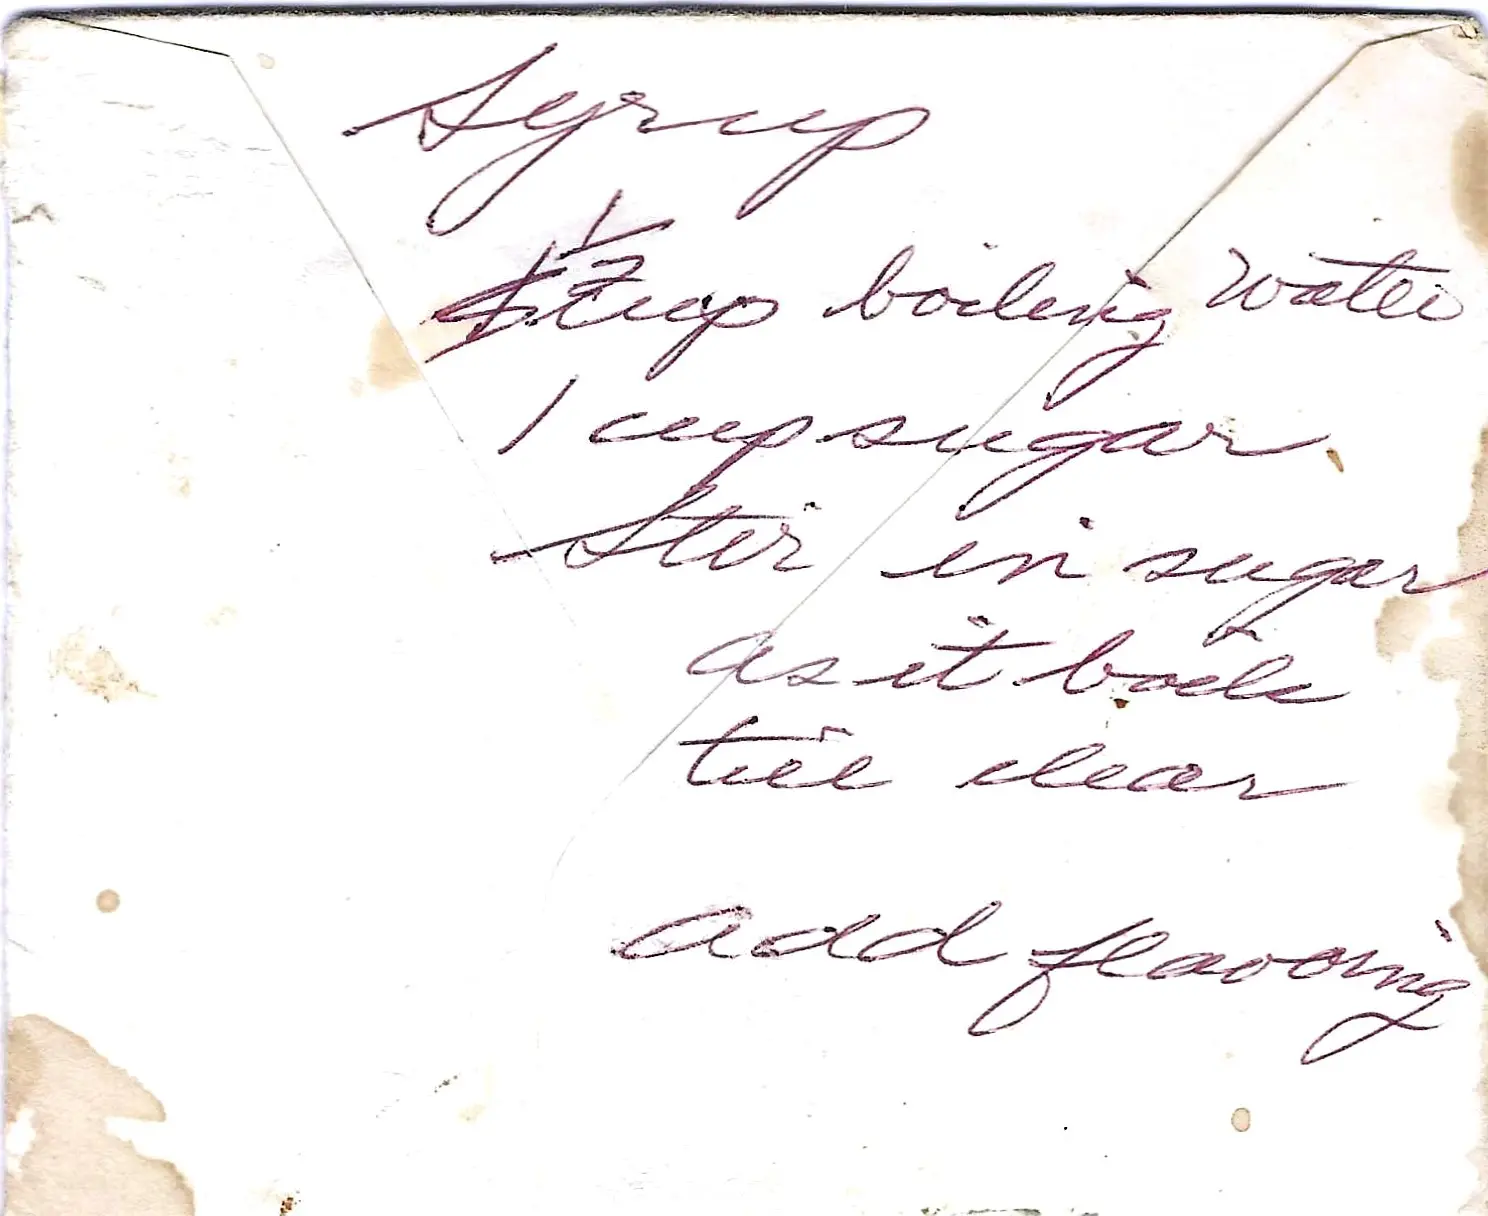 Syrup
1/2 cup boiling water
1 cup sugar
Stir in sugar
as it boils
till clear
add flavoring